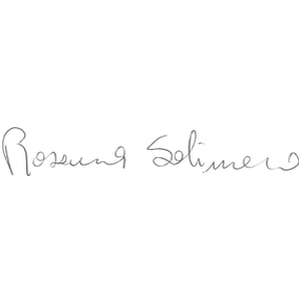 Rosanna Solimeno